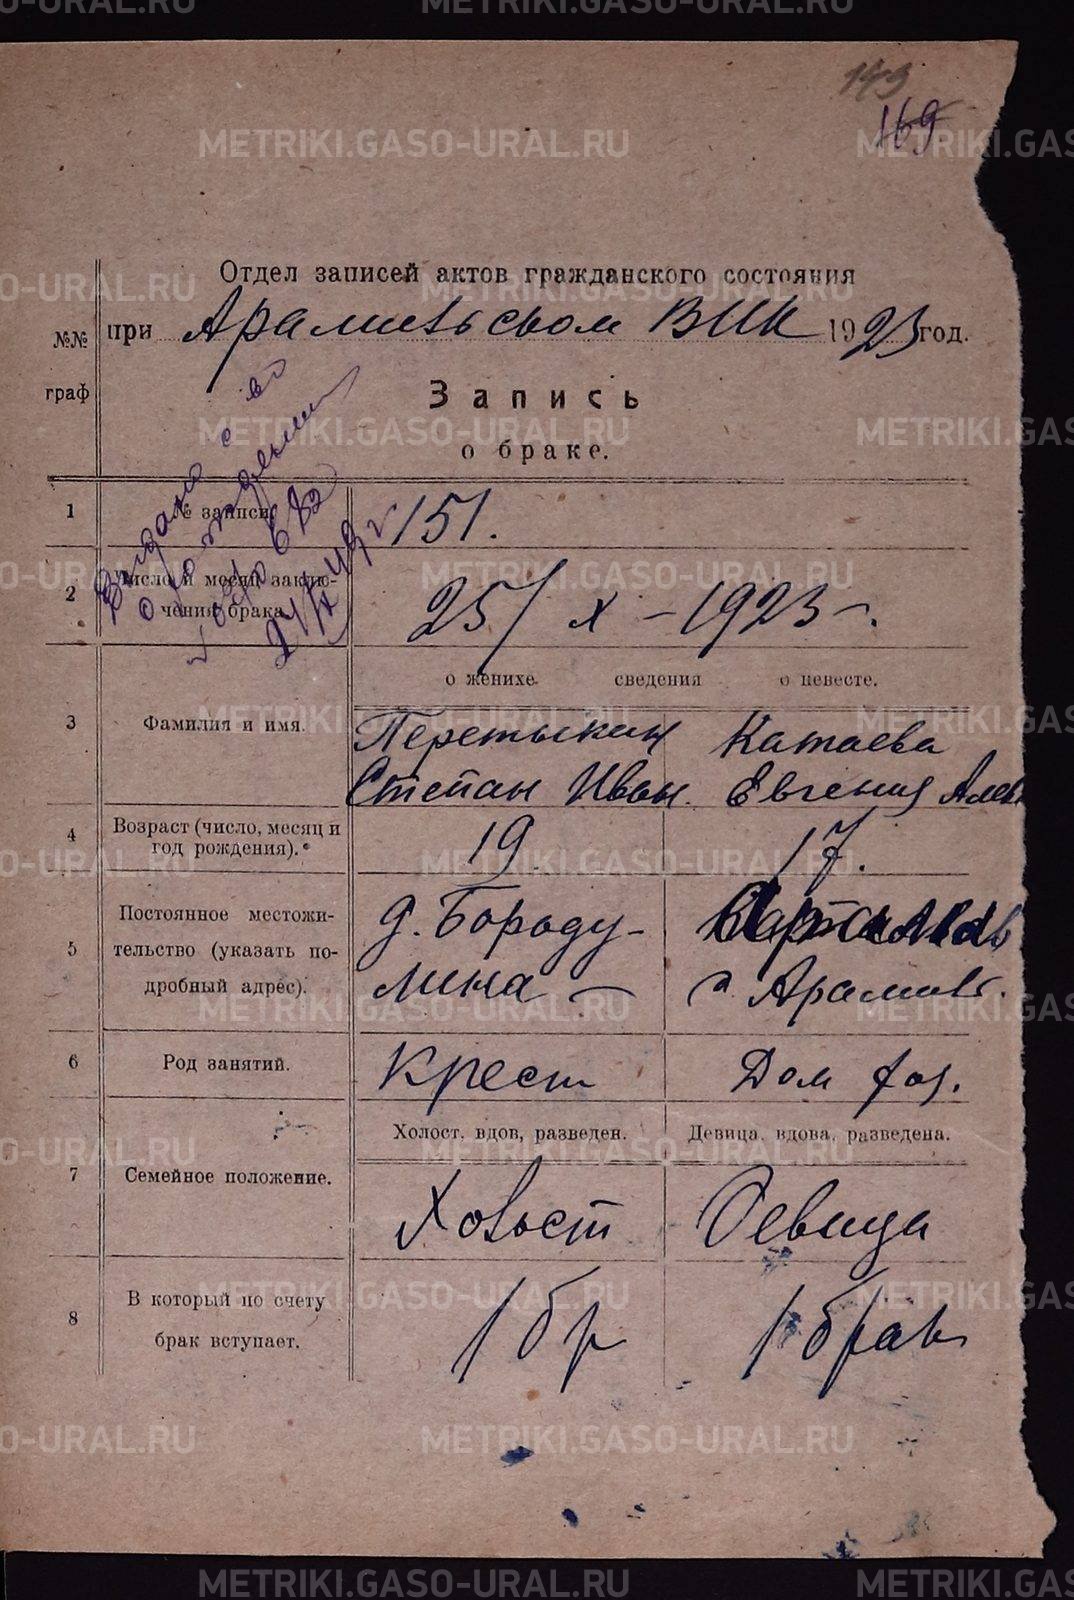 METRIKI.GASO-URAL.RU
149
169
Отдел записей актов гражданского состояния
№№ граф
при Арамильском ВИК 1923 год.
Запись
о браке.
Выдано с во
24/IX 49 г
1 № записи 151.
2 Число и месяц заклю-
чения брака 25/X - 1923 -.
о женихе сведения о невесте.
3 Фамилия и имя. Перетыкин Катаева
Степан Иван. Евгения Алек
4 Возраст (число, месяц и
год рождения).* 19 17.
5 Постоянное местожи-
тельство (указать по-
дробный адрес).
д. Бороду-
лина -
Арамил.
6 Род занятий. Крест Дом хоз.
Холост, вдов, разведен. Девица, вдова, разведена.
7 Семейное положение. Холост Девица
8 В который по счету
брак вступает. 1 бр 1 брак